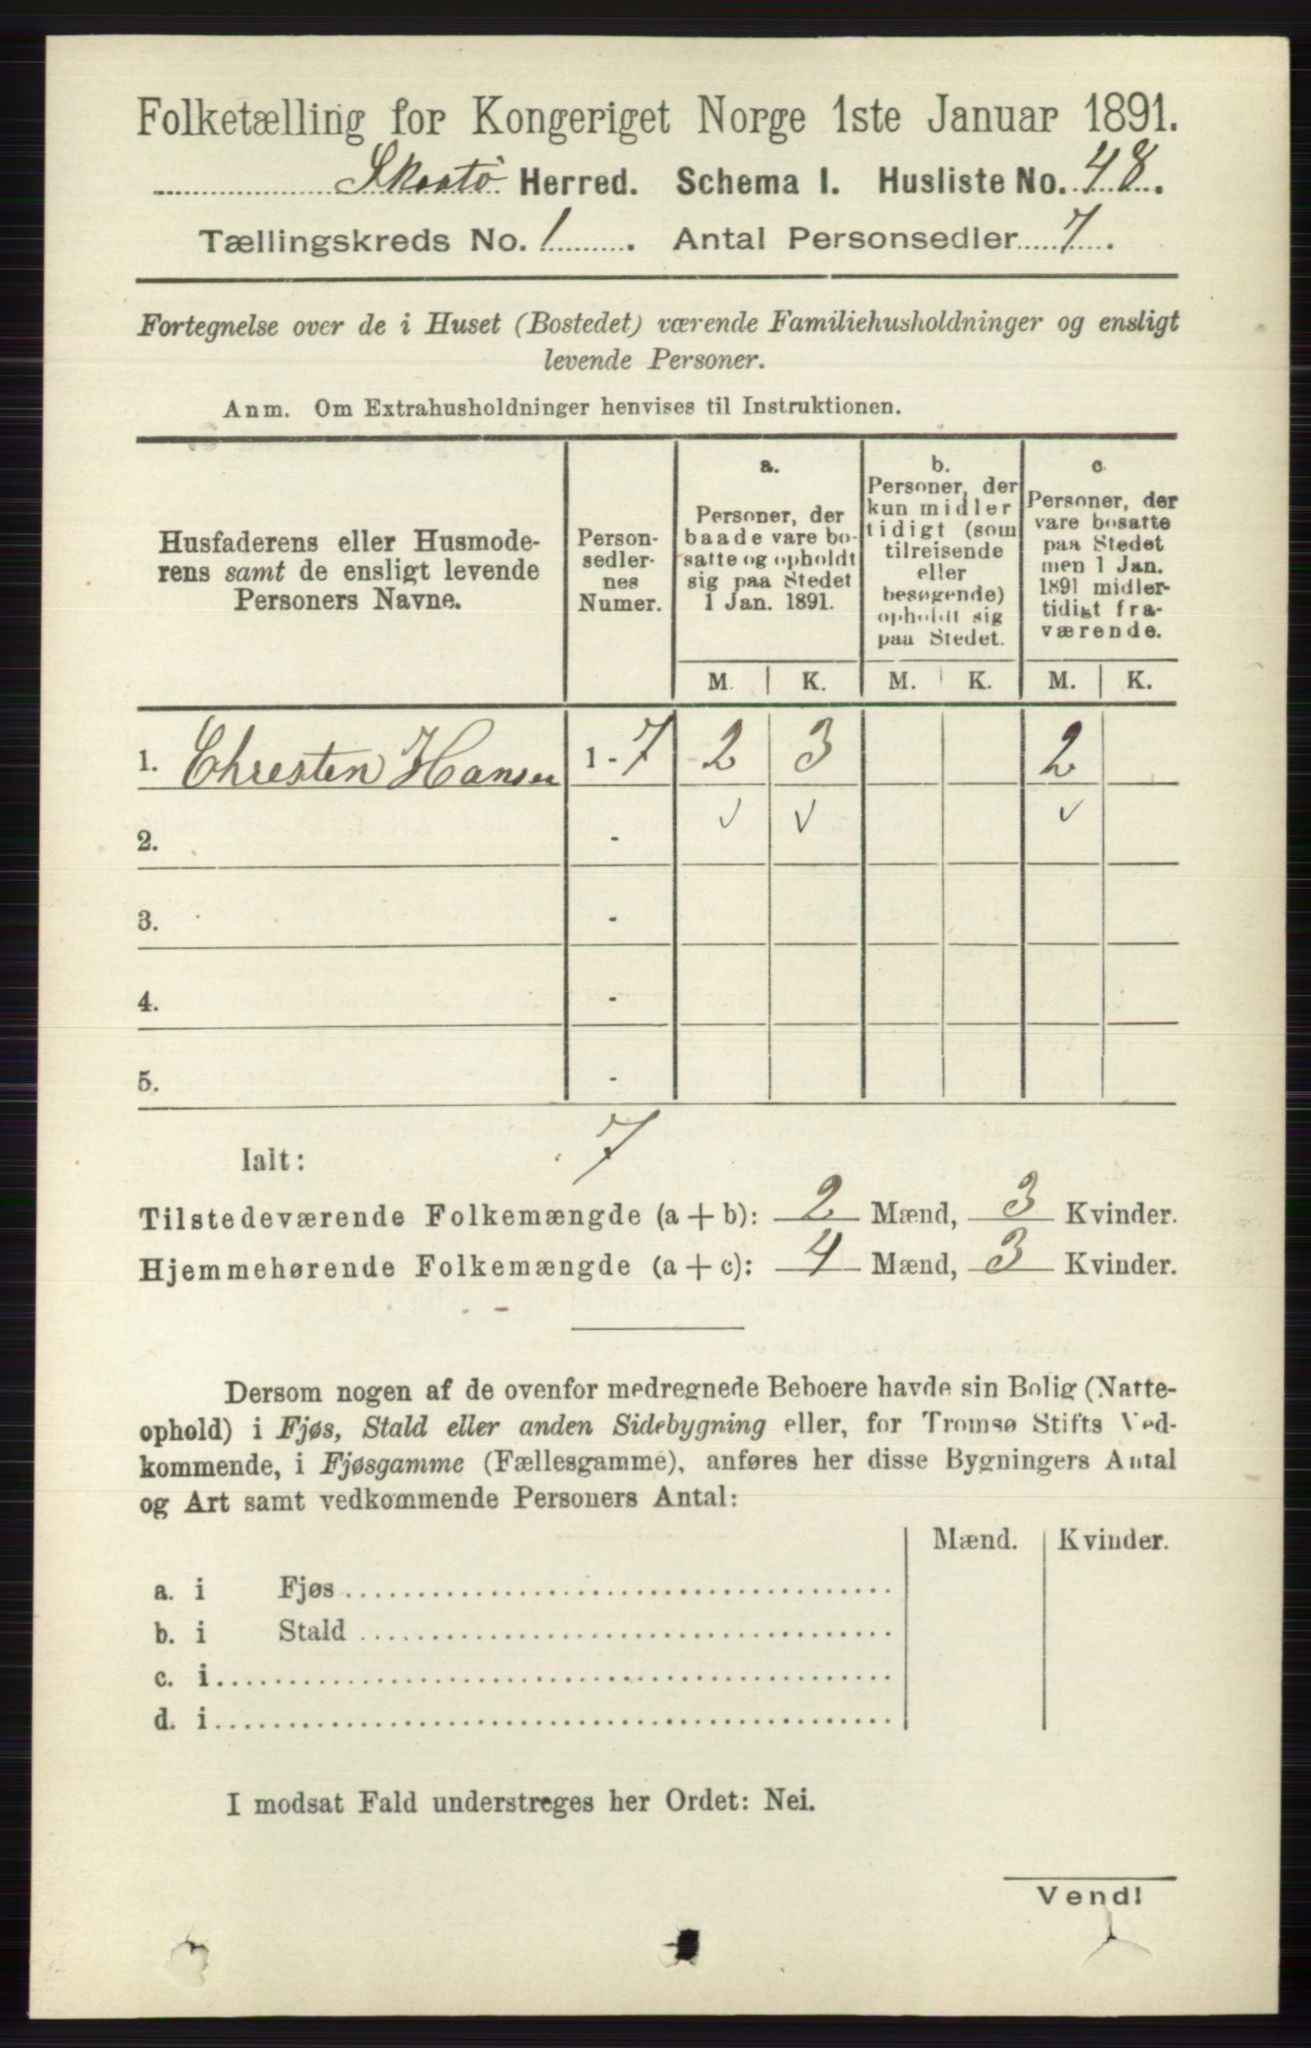 Folketælling for Kongeriget Norge 1ste Januar 1891.
Skaatö Herred. Schema I. Husliste No. 48.
Tællingskreds No. 1. Antal Personsedler 7.
Fortegnelse over de i Huset (Bostedet) værende Familiehusholdninger og ensligt
levende Personer.
Anm. Om Extrahusholdninger henvises til Instruktionen.
Husfaderens eller Husmode-
rens samt de ensligt levende
Personers Navne.
Person-
sedler-
nes
Numer.
a.
Personer, der
baade vare bo-
satte og opholdt
sig paa Stedet
1 Jan. 1891.
b.
Personer, der
kun midler
tidigt (som
tilreisende
eller
besøgende)
opholdt sig
paa Stedet.
c
Personer, der
vare bosatte
paa Stedet
men 1 Jan.
1891 midler-
tidigt fra-
værende.
M. K. M. K. M. K.
1. Chresten Hansen 1-7 2 3 2
2. - √ √ √
3. -
4. -
5. -
Ialt: 7
Tilstedeværende Folkemængde (a + b): 2 Mænd, 3 Kvinder.
Hjemmehørende Folkemængde (a + c): 4 Mænd, 3 Kvinder.
Dersom nogen af de ovenfor medregnede Beboere havde sin Bolig (Natte-
ophold) i Fjøs, Stald eller anden Sidebygning eller, for Tromsø Stifts Ved-
kommende, i Fjøsgamme (Fællesgamme), anføres her disse Bygningers Antal
og Art samt vedkommende Personers Antal:
Mænd. Kvinder.
a. i Fjøs
b. i Stald
c. i
d. i
I modsat Fald understreges her Ordet: Nei.
Vend!